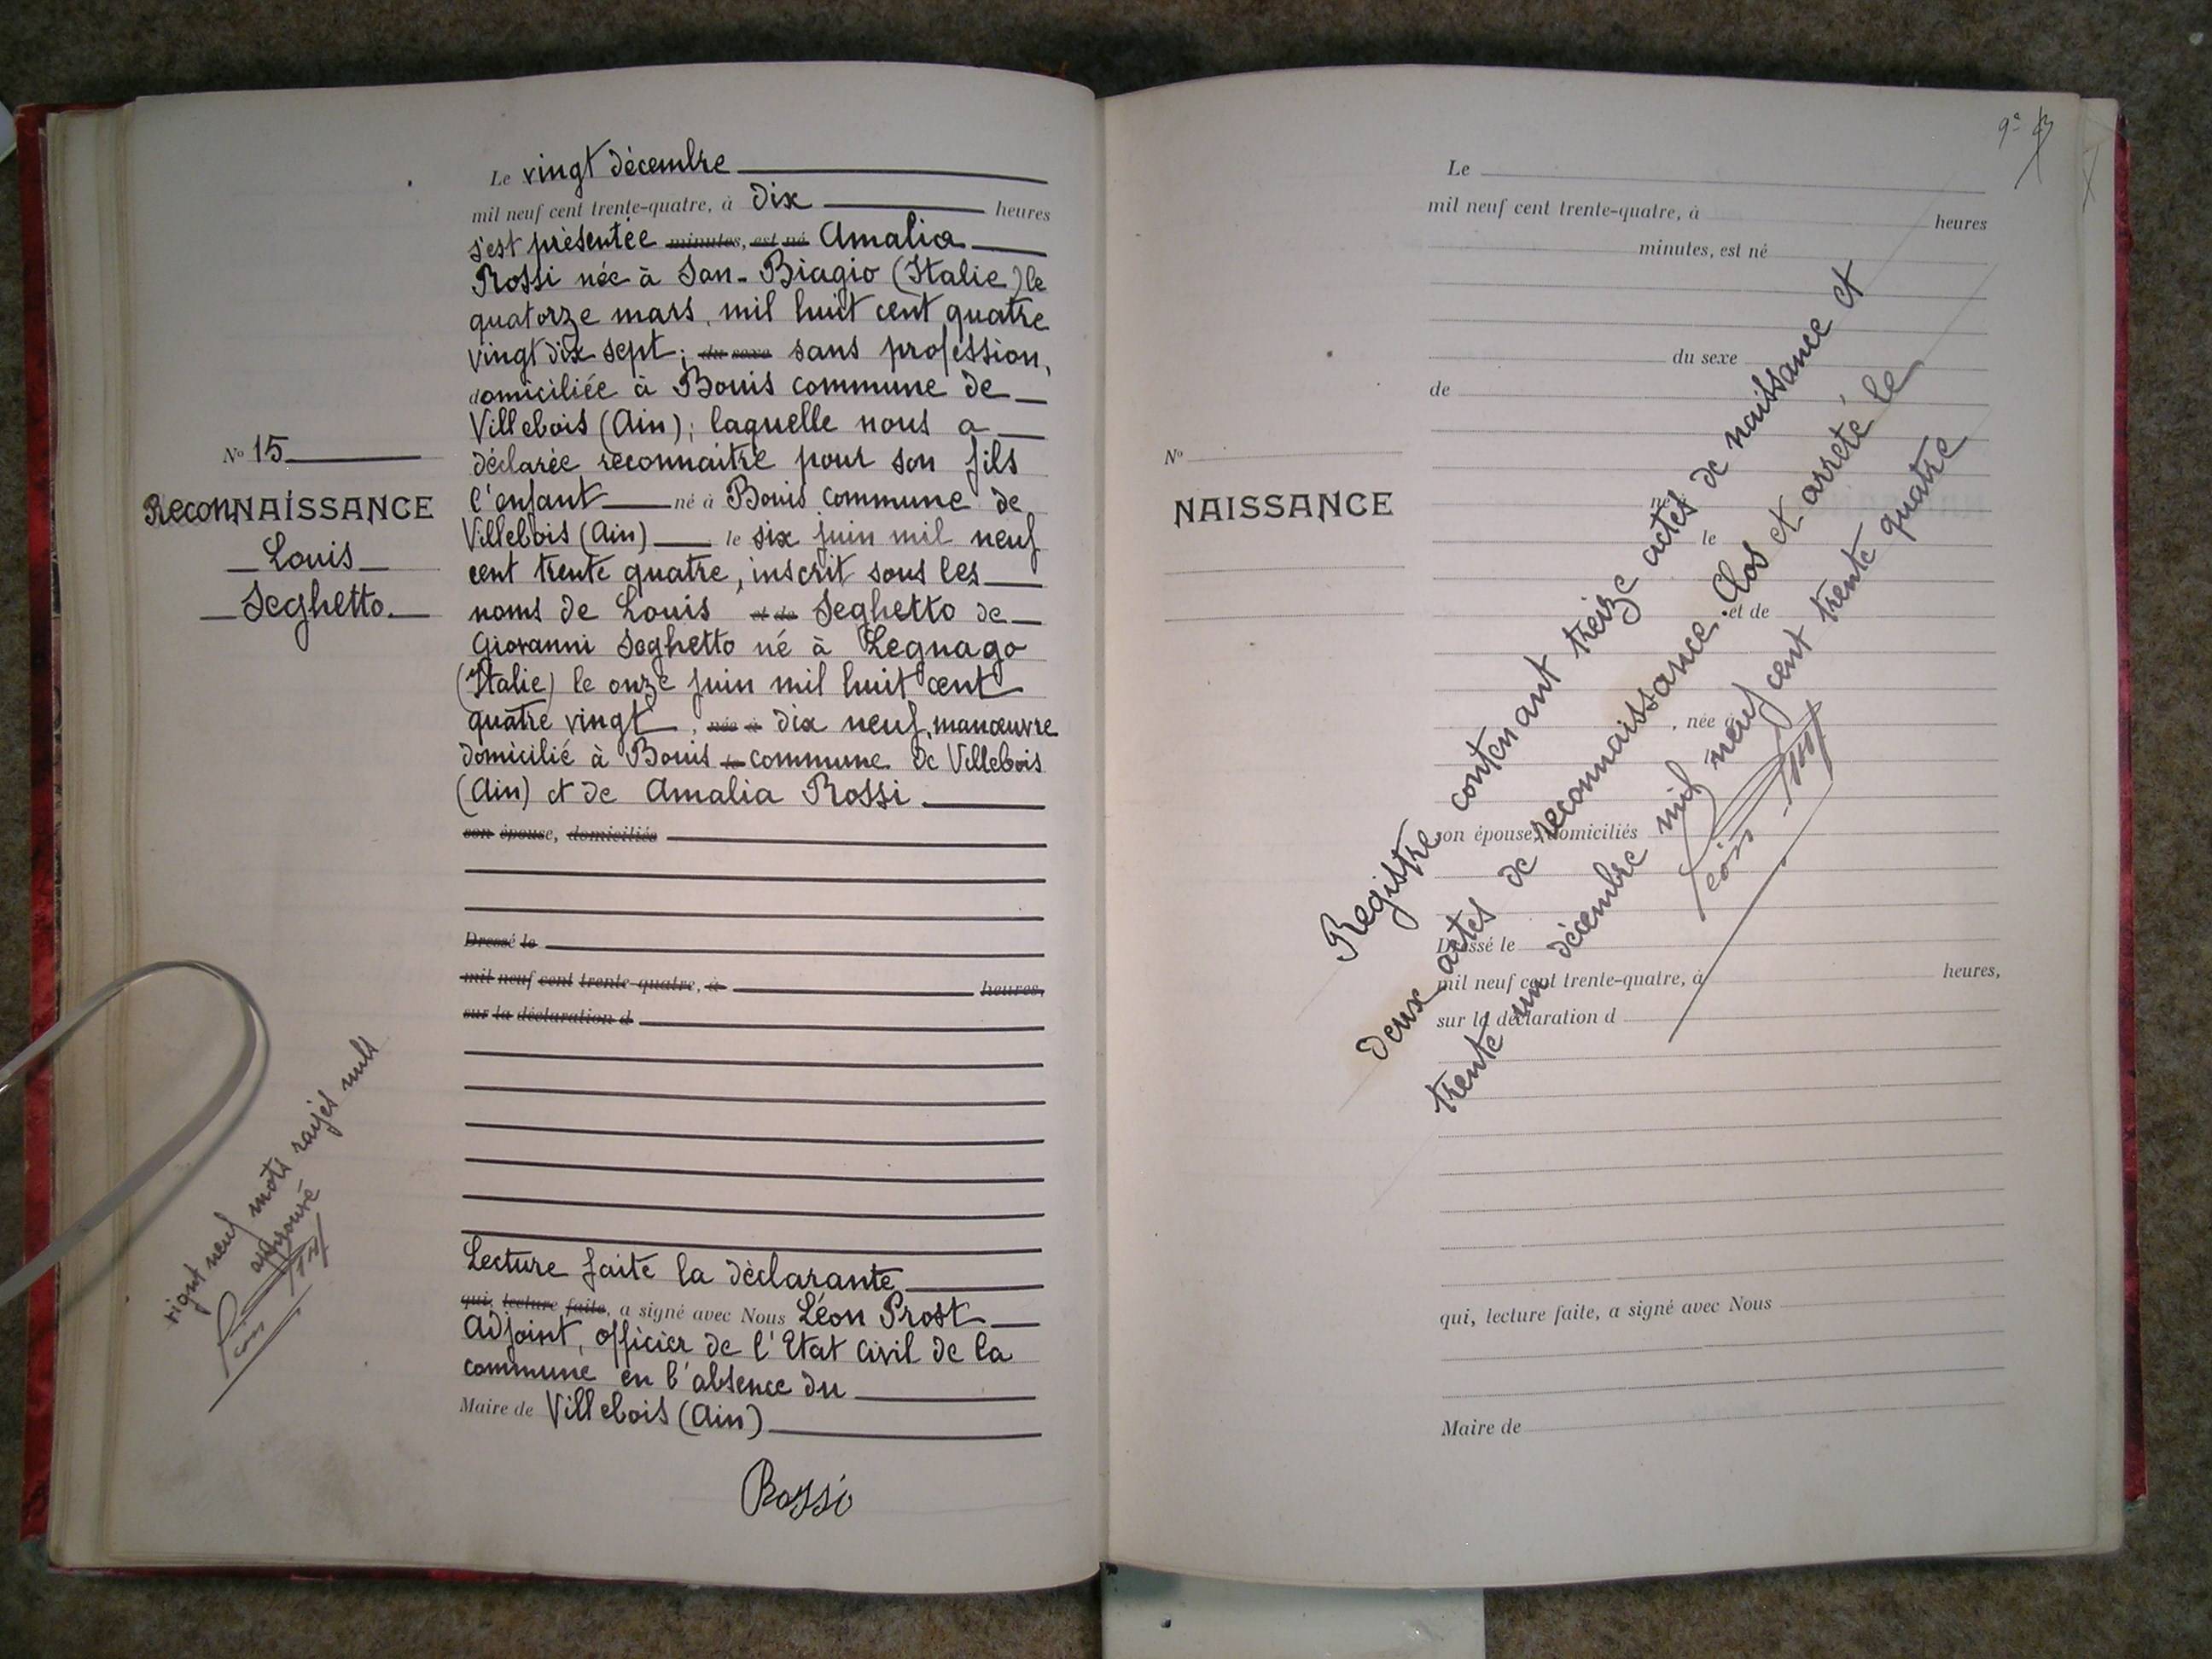 Le vingt décembre
mil neuf cent trente-quatre, à dix heures
s'est présentée minutes, est né Amalia
Rossi née à San-Biagio (Italie) le
quatorze mars, mil huit cent quatre
vingt dix sept; du sexe sans profession,
domiciliée à Bouis commune de
Villebois (Ain); laquelle nous a
déclarée reconnaitre pour son fils
l'enfant né à Bouis commune de
Villebois (Ain) le six juin mil neuf
cent trente quatre, inscrit sous les
noms de Louis et de Seghetto de
Giovanni Seghetto né à Legnago
(Italie) le onze juin mil huit cent
quatre vingt, née à dix neuf, manœuvre
domicilié à Bouis commune de Villebois
(Ain) et de Amalia Rossi.
son épouse, domiciliés
Dressé le
mil neuf cent trente-quatre, à heures,
sur la déclaration d
Lecture faite la déclarante
qui, lecture faite, a signé avec Nous Léon Prost
Adjoint, officier de l'Etat Civil de la
commune en l'absence du
Maire de Villebois (Ain)
Rossi
N° 15
ReconNAISSANCE
Louis
Seghetto.
vignt neuf mots rayés nuls
approuvé
Le
mil neuf cent trente-quatre, à heures
minutes, est né
du sexe
de
né à
le
et de
, née à
son épouse, domiciliés
Dressé le
mil neuf cent trente-quatre, à heures,
sur la déclaration d
qui, lecture faite, a signé avec Nous
Maire de
N°
NAISSANCE
Registre contenant treize actes de naissance et
deux actes de reconnaissance. Clos et arreté le
trente un décembre mil neuf cent trente quatre